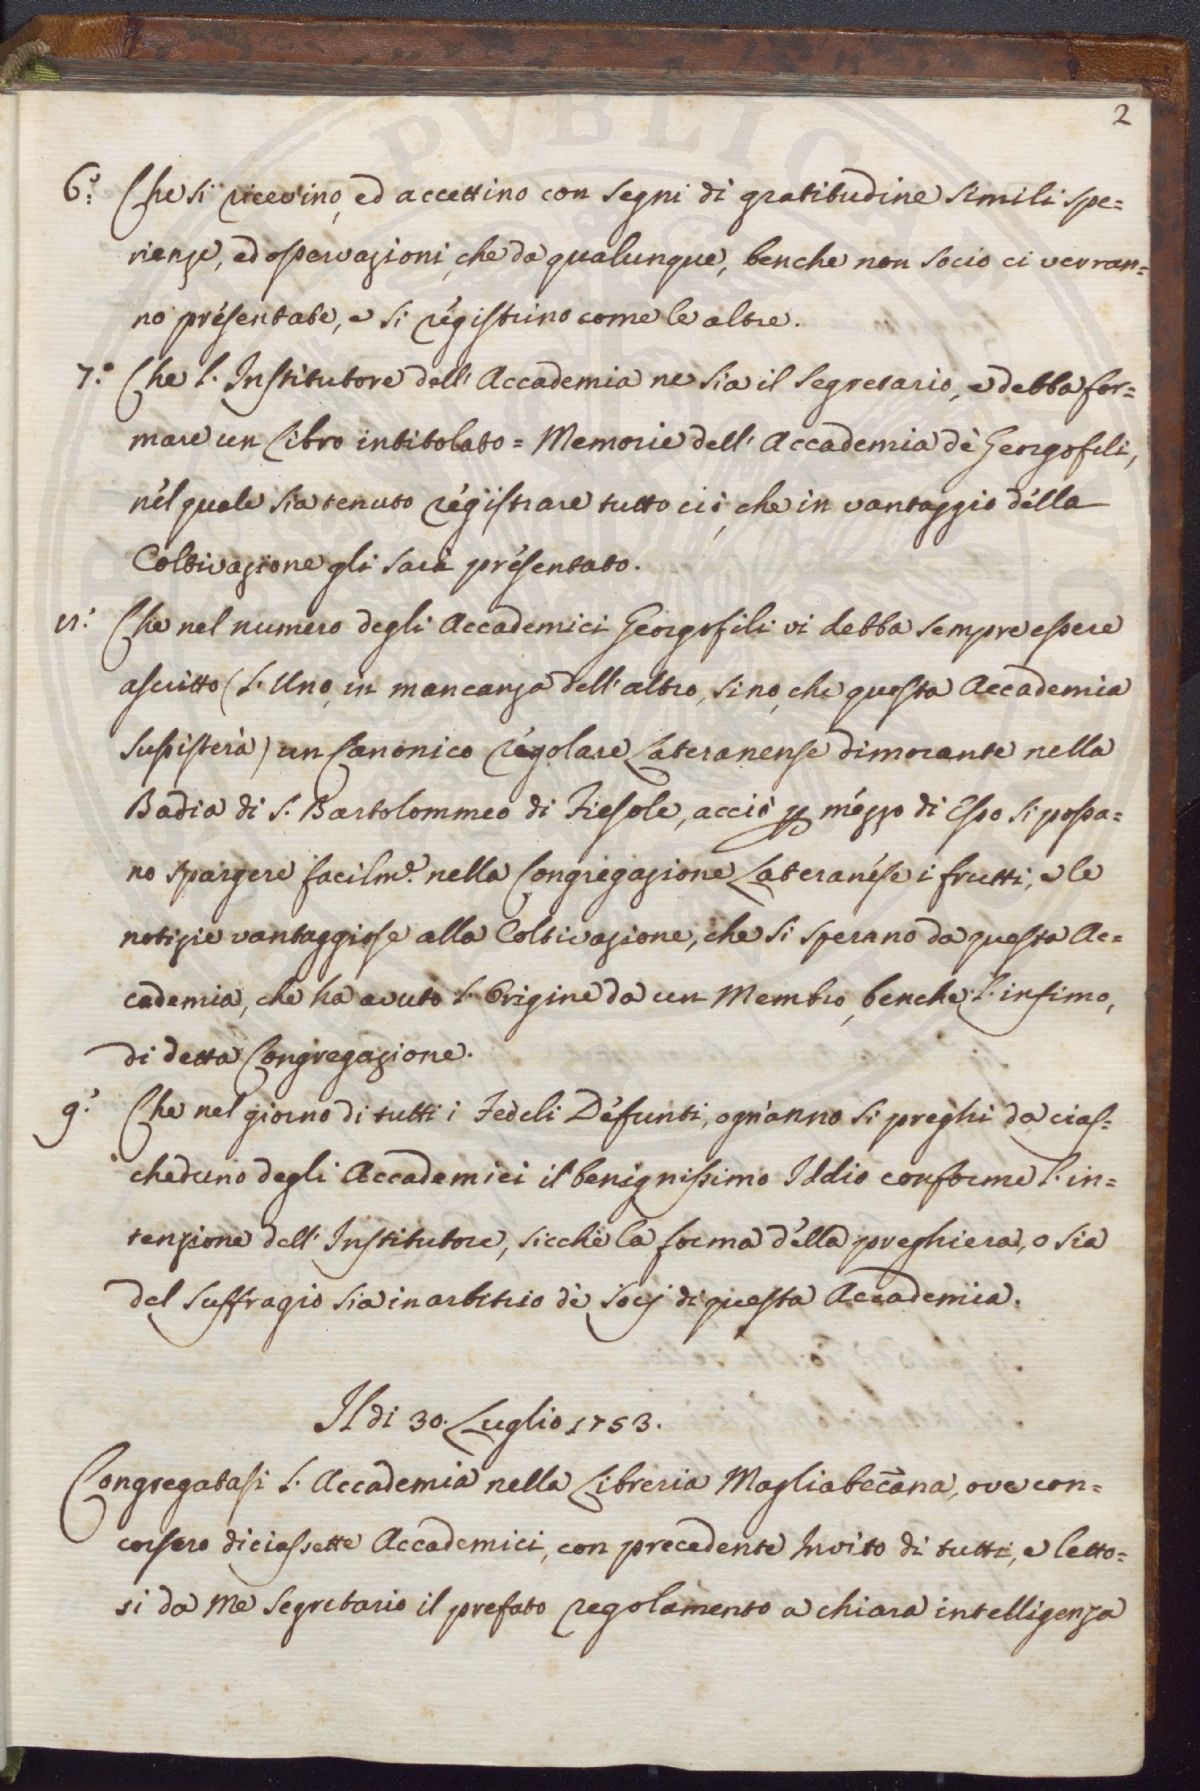 2
6.° Che si ricevino, ed accettino con segni di gratitudine simili spe=
rienze, ed osservazioni, che da qualunque, benche non socio ci verran=
no présentate, e si régistrino come le altre.
7.° Che l'Institutore dell'Accademia ne sia il Segretario, e debba for=
mare un Libro intitolato = Memorie dell'Accademia dè Georgofili,
nél quale sia tenuto régistrare tutto ciò, che in vantaggio délla
Coltivazione gli sarà présentato.
Che nel numero degli Accademici Georgofili vi debba sempre essere
ascritto (l'Uno, in mancanza dell'altro, sino, che questa Accademia
sussisterà) un Canonico Régolare Lateranense dimorante nella
Badia di S. Bartolommeo di Fiesole, acciò p mézzo di Esso si possa=
no spargere facilm.e nella Congregazione Lateranése i frutti, e le
notizie vantaggiose alla Coltivazione, che si sperano da questa Ac=
cademia, che ha avuto l'Origine da un Membro, benche l'infimo,
di detta Congregazione.
9.° Che nel giorno di tutti i Fedeli Défunti, ogn'anno si preghi da cias=
cheduno degli Accademici il benignissimo Iddio conforme l'in=
tenzione dell'Institutore, sicchè la forma délla preghiera, o sia
del suffragio sia in arbitrio dè Socj di questa Accademia.
Il di 30. Luglio 1753.
Congregatasi l'Accademia nella Libreria Magliabecana, ove con=
corsero diciassette Accademici, con precedente Invito di tutti, e letto=
si da Me Segretario il prefato regolamento a chiara intelligenza
PVBLIC